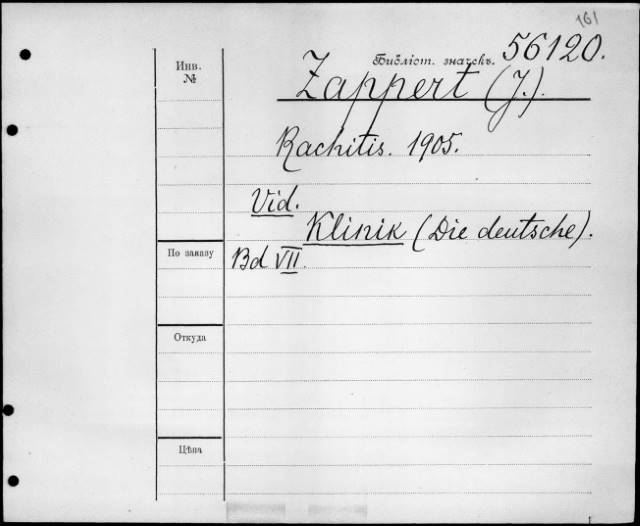 161
Библіот. значекъ. 56120.
Инв.
№
Zappert (J.).
Rachitis. 1905.
Vid.
Klinik (Die deutsche).
По заказу
Bd VII.
Откуда
Цѣна